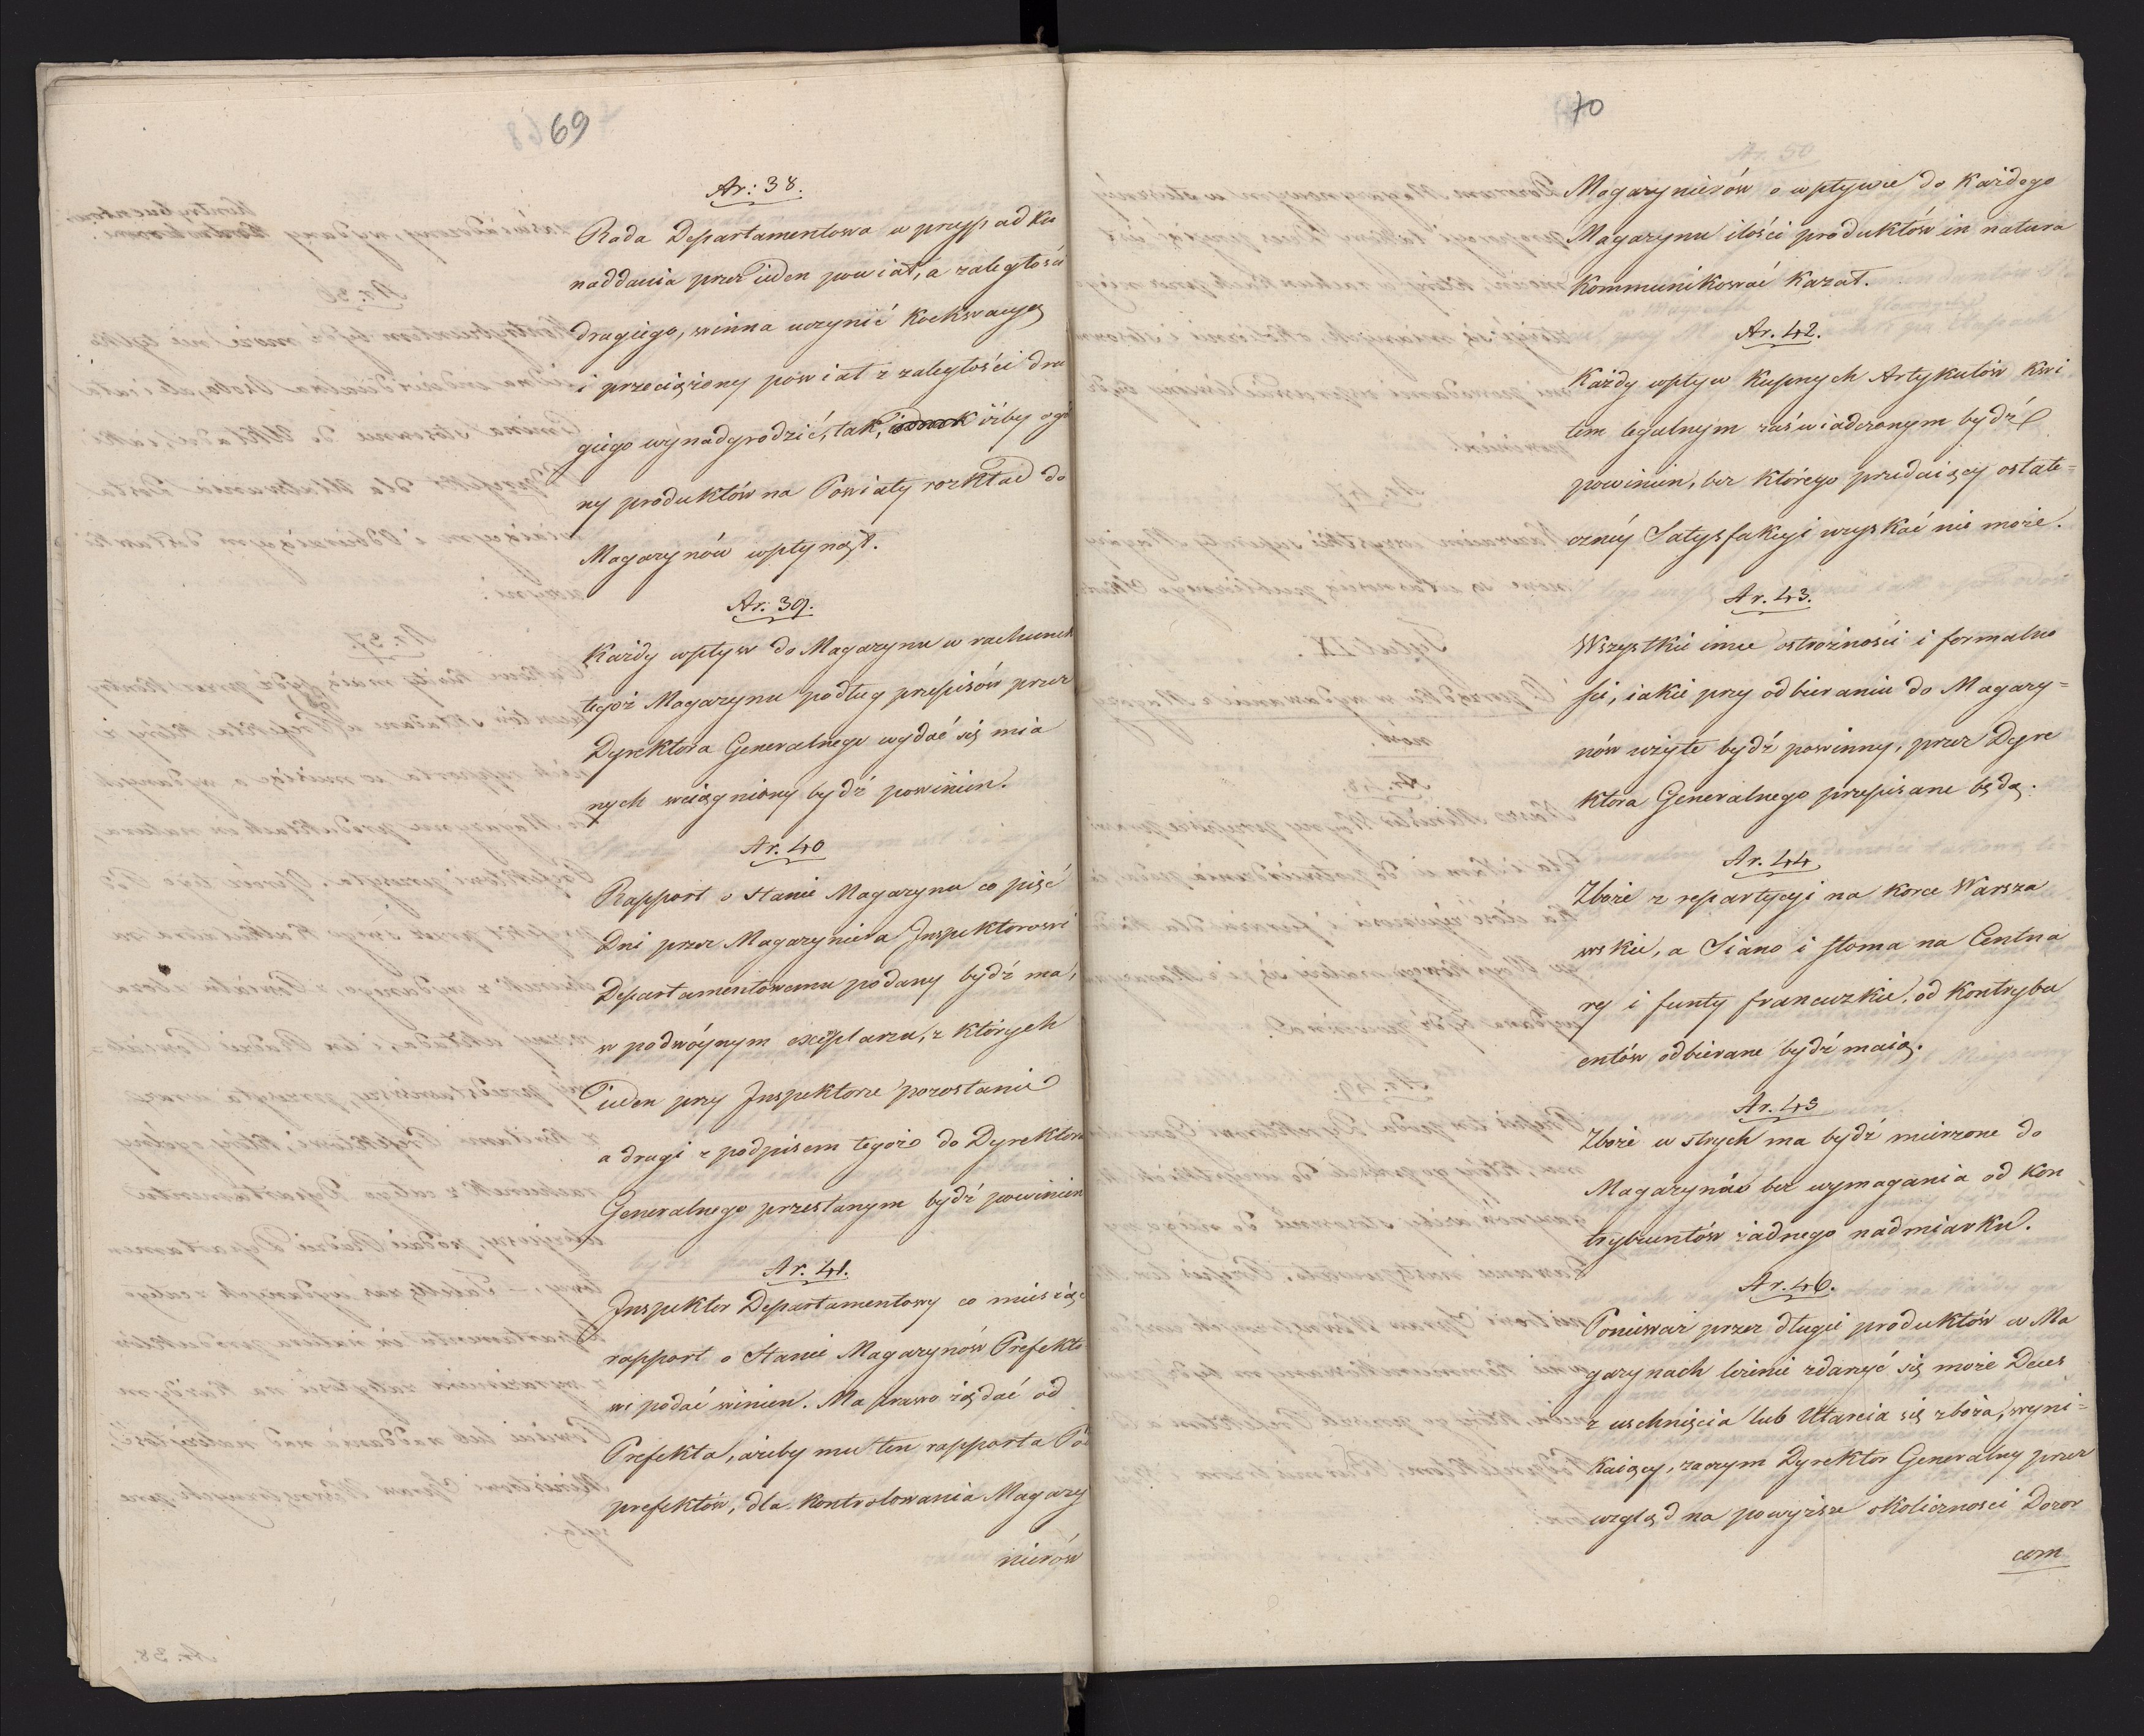 69
Ar: 38.
Rada Departamentowa w przypadku
naddania przez ieden powiat, a zaległości
drugiego, winna uczynić Koekwacyą
i przeciążony powiat z zaległości dru
giego wynadgrodzić, tak, iednak iżby ogó
ny produktów na Powiaty rozkład do
Magazynów wpłynął.
Ar. 39.
Każdy wpływ do Magazynu w rachunek
tegoż Magazynu podług przepisów przez
Dyrektora Generalnego wydać się mia
nych wciągniony bydź powinien.
Ar. 40
Rapport o Stanie Magazynu co pięć
Dni przez Magazyniera Inspektorowi
Departamentowemu podany bydź ma,
w podwóynym exemplarzu, z których
ieden przy Inspektorze pozostanie
a drugi z podpisem tegoż do Dyrektora
Generalnego przesłanym bydź powinien
Ar. 41.
Inspektor Departamentowy co miesiąc
rapport o Stanie Magazynów Prefekto
wi podać winien. Ma prawo żądać od
Prefekta, ażeby mu ten rapporta Po
prefektów, dla kontrolowania Magazy
nierów
70
Magazynierów o wpływie do Każdego
Magazynu ilości produktów in natura
Kommunikować Kazał.
Ar. 42.
Każdy wpływ Kupnych Artykułów Kwi
tem legalnym zaświadczonym bydź
powinien, bez którego przedaiący ostate=
czney Satysfakcyi uzyskać nie może.
Ar. 43.
Wszystkie inne ostrożności i formalno
ści, iakie przy odbieraniu do Magazy=
nów użyte bydź powinny, przez Dyre
ktora Generalnego przepisane będą.
Ar. 44
Zboże z repartycyi na Korce Warsza
wskie, a Siano i słoma na Centna
ry i funty francuzkie, od Kontrybu
entów odbierane bydź maią.
Ar. 45
Zboże w strych ma bydź mierzone do
Magazynów bez wymagania od Kon
trybuentów żadnego nadmiarku.
Ar. 46.
Ponieważ przez długie produktów w Ma
gazynach leżenie zdarzyć się może Deces
z uschnięcia lub Utarcia się zboża, wyni=
Kaiący, zaczym Dyrektor Generalny przez
wzgląd na powyższe okoliczności Dozor
com